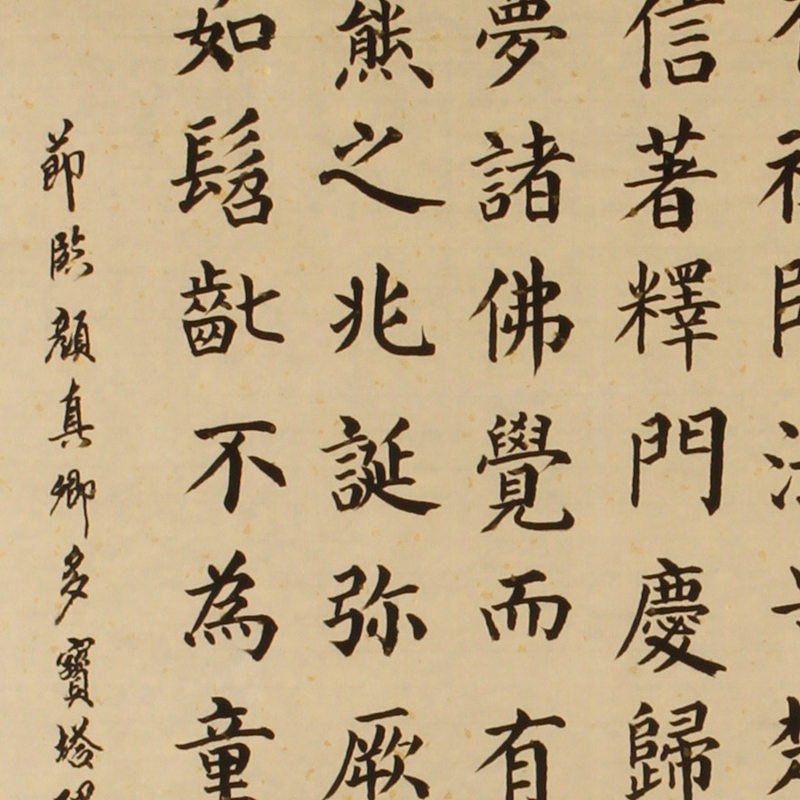 信著釋門慶歸
夢諸佛覺而有
熊之兆誕弥厥
如髫齔不為童
莭臨顏真卿多寶塔